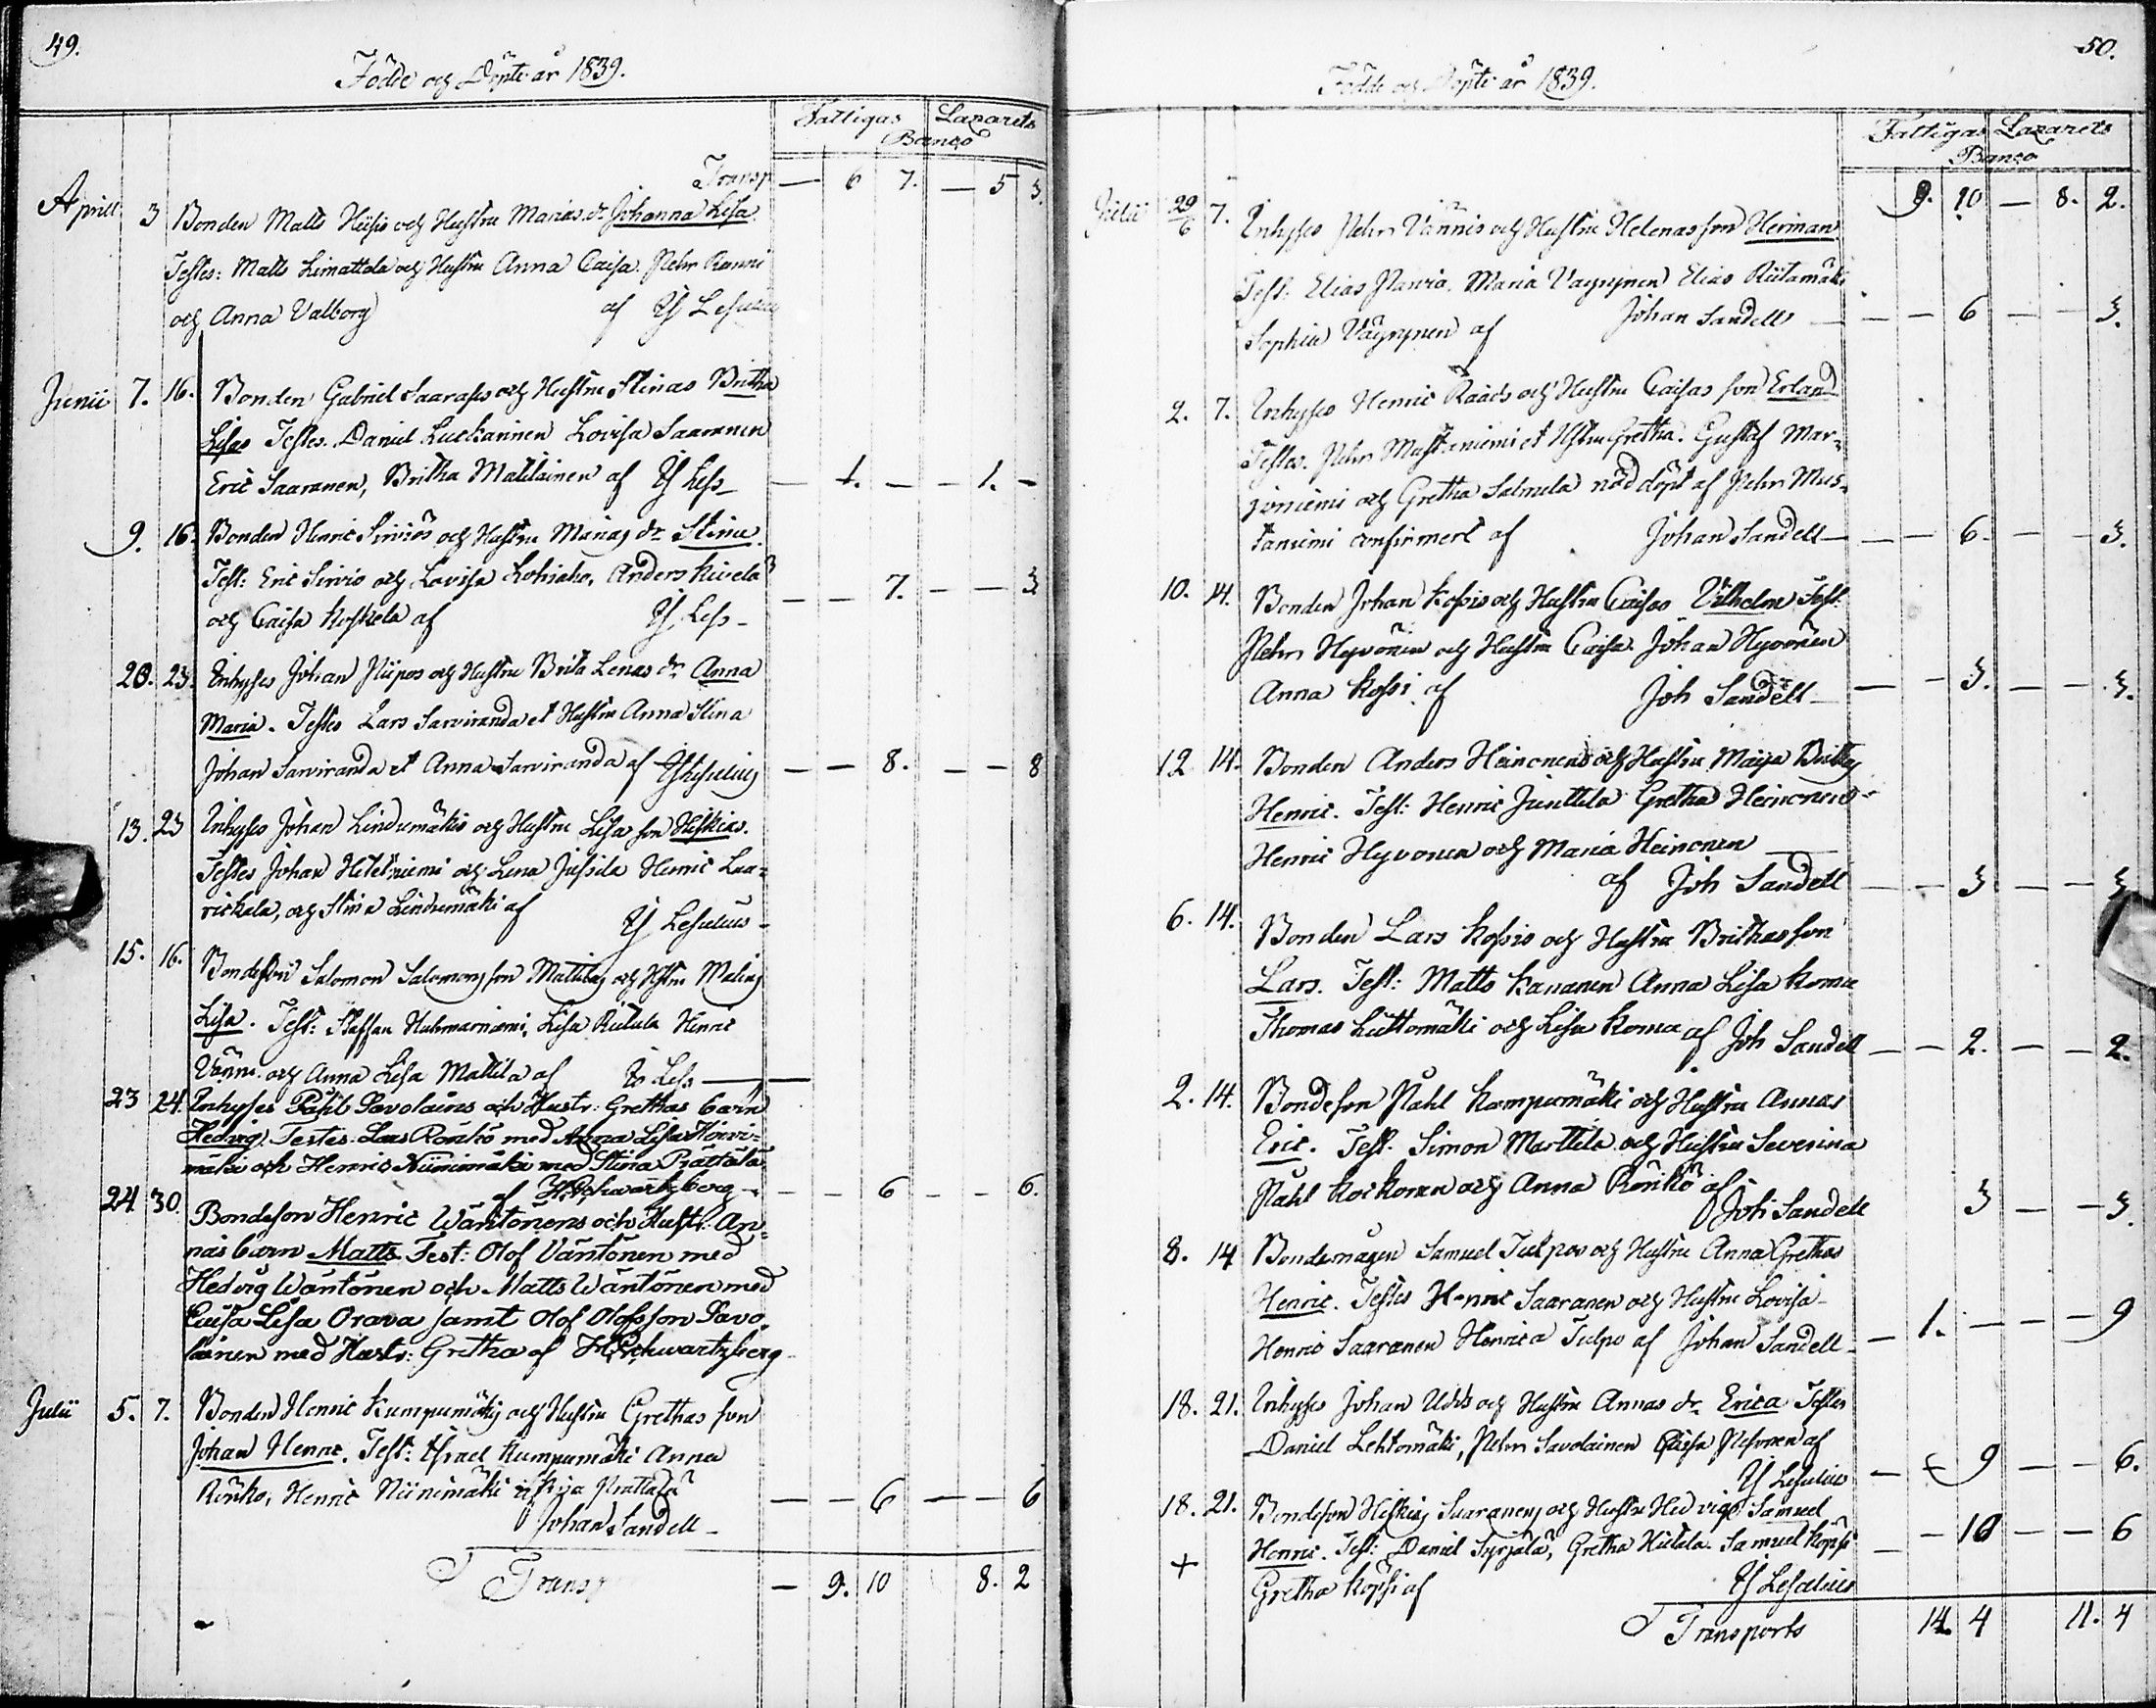 49.
Födde och Döpte år 1839.
Fattigas Lazarets
Banco
Transp — 6 7. — 5 3.
Aprill 3 Bonden Matts Heisis och Hustru Marias dr Johanna Lisa.
Testes: Matts Limattala och Hustru Anna Caisa. Pehr Ranni
och Anna Valborg af
Junii 7. 16. Bonden Gabriel Saarases och Hustru Stinas Britha
Lisa Testes. Daniel Luckarinen Lovisa Saaranen
Eric Saaranen, Britha Matilainen af Is Less — 1. — — 1. —
9. 16. Bonden Henric Sirviös och Hustru Marias dr Stina.
Test: Eric Sirvio och Lovisa Lohiaho, Anders Kivela
och Caisa Koskela af Is Less — — — 7. — — 3
20. 23. Inhyses Johan Piipos och Hustru Brita Lenas dr Anna
Maria. Testes Lars Sarviranda et Hustru Anna Stina
Johan Sarviranda et Anna Sarviranda af Is Leselius — — 8. — — 8
13. 23 Inhyses Johan Lindumäkis och Hustru Lisas son Hiskias.
Testes Johan Heteniemi och Lena Jussila Henric Laa-
rickala, och Stina Lindumäki af Is Leselius —
15. 16. Bondeson Salomon Salomonsson Mattilas och Hstru Malins
Lisa. Test: Staffan Huhmarniemi, Lisa Rutula Henric
Vänni och Anna Lisa Mattila af Is Less —
23 24. Inhyses Påhl Savolains och Hustr: Grethas barn
Hedvig. Testes. Lars Rönkö med Anna Lisa Horvi-
mäki och Henric Niinimäki med Stina Prättälä
af H. Schwartzberg — — — 6 — — 6.
24. 30. Bondeson Henric Wäntönens och Hustr: An-
nas barn Matts. Test: Olof Väntönen med
Hedvig Wäntönen och Matts Wäntönen med
Caisa Lisa Orava samt Olof Olofsson Savo-
lainen med Hustr: Gretha af H. Schwartzberg
Julii 5. 7. Bonden Henric Kumpumäkis och Hustru Grethas son
Johan Henric. Test: Israel Kumpumäki Anna
Rönko, Henric Niinimäki Kaja Prattala
Johan Sandell — — — 6 — — 6
Transp — 9. 10 8. 2
50.
Födde och Döpte år 1839.
Fattigas Lazarets
Banco
9. 10 — 8. 2.
Julii 29/6 7. Inhyses Pehr Vännis och Hustru Helenas son Herman
Test: Elias Maria Väyrynen Elias Riitamäki
Sophia Väyrynen af Johan Sandell — — — 6 — — 3.
2. 7. Inhyses Henric Raads och Hustru Caisas son Erland
Testes. Pehr Mustaniemi et Hstru Gretha. Gustaf Mar-
joniemi och Gretha Salmela nöd döpt af Pehr Mus-
taniemi confirmert af Johan Sandell — — — 6. — — 3.
10. 14. Bonden Johan Kossis och Hustru Caisas Vilhelm Test:
Pehr Hyvönen och Hustru Caisa. Johan Hyvönen
Anna Kossi af Joh Sandell — — — 3. — — 3.
12 14. Bonden Anders Heinonens och Hustru Maija Brithas
Henric. Test: Henric Junttila Gretha Heinonen
Henric Hyvonen och Maria Heinonen
af Joh Sandell — — 3 — — 3
6. 14. Bonden Lars Kossis och Hustru Brithas son
Lars. Test: Matts Kananen Anna Lisa Koma
Thomas Luttomäki och Lisa Koma af Joh Sandell — — 2. — — 2.
2. 14. Bondeson Pahl Kampumäki och Hustru Annas
Eric. Test. Simon Marttila och Hustru Severina
Pahl Korkonen och Anna Rönkö af Joh Sandell 3 — — 3.
8. 14 Bondemågen Samuel Tulpos och Hustru Anna Grethas
Henric. Testes Henric Saaranen och Hustru Lovisa
Henric Saaranen Henrica Tulpo af Johan Sandell — 1. — — — 9
18. 21. Inhyses Johan Udds och Hustru Annas dr Erica Testes
Daniel Lehtomäki, Pehr Savolainen Caisa Pesonen af
Is Leselius — — 9 — — 6.
18. 21. Bondeson Hiskias Saaranens och Hustru Hedvigs Samuel
Henric. Test: Daniel Syrjälä, Gretha Kiilala. Samuel Köpsi — — 10 — — 6
+ Gretha Köpsi af Is Leselius
Transports 14 4 11. 4